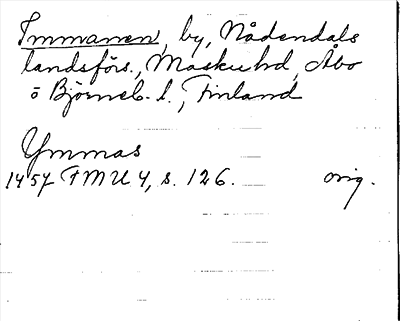 Immanen, by, Nådendals
landsförs., Masku hd, Åbo
o Björneb. l., Finland
Ymmas
1457 FMU 4, s. 126. orig.